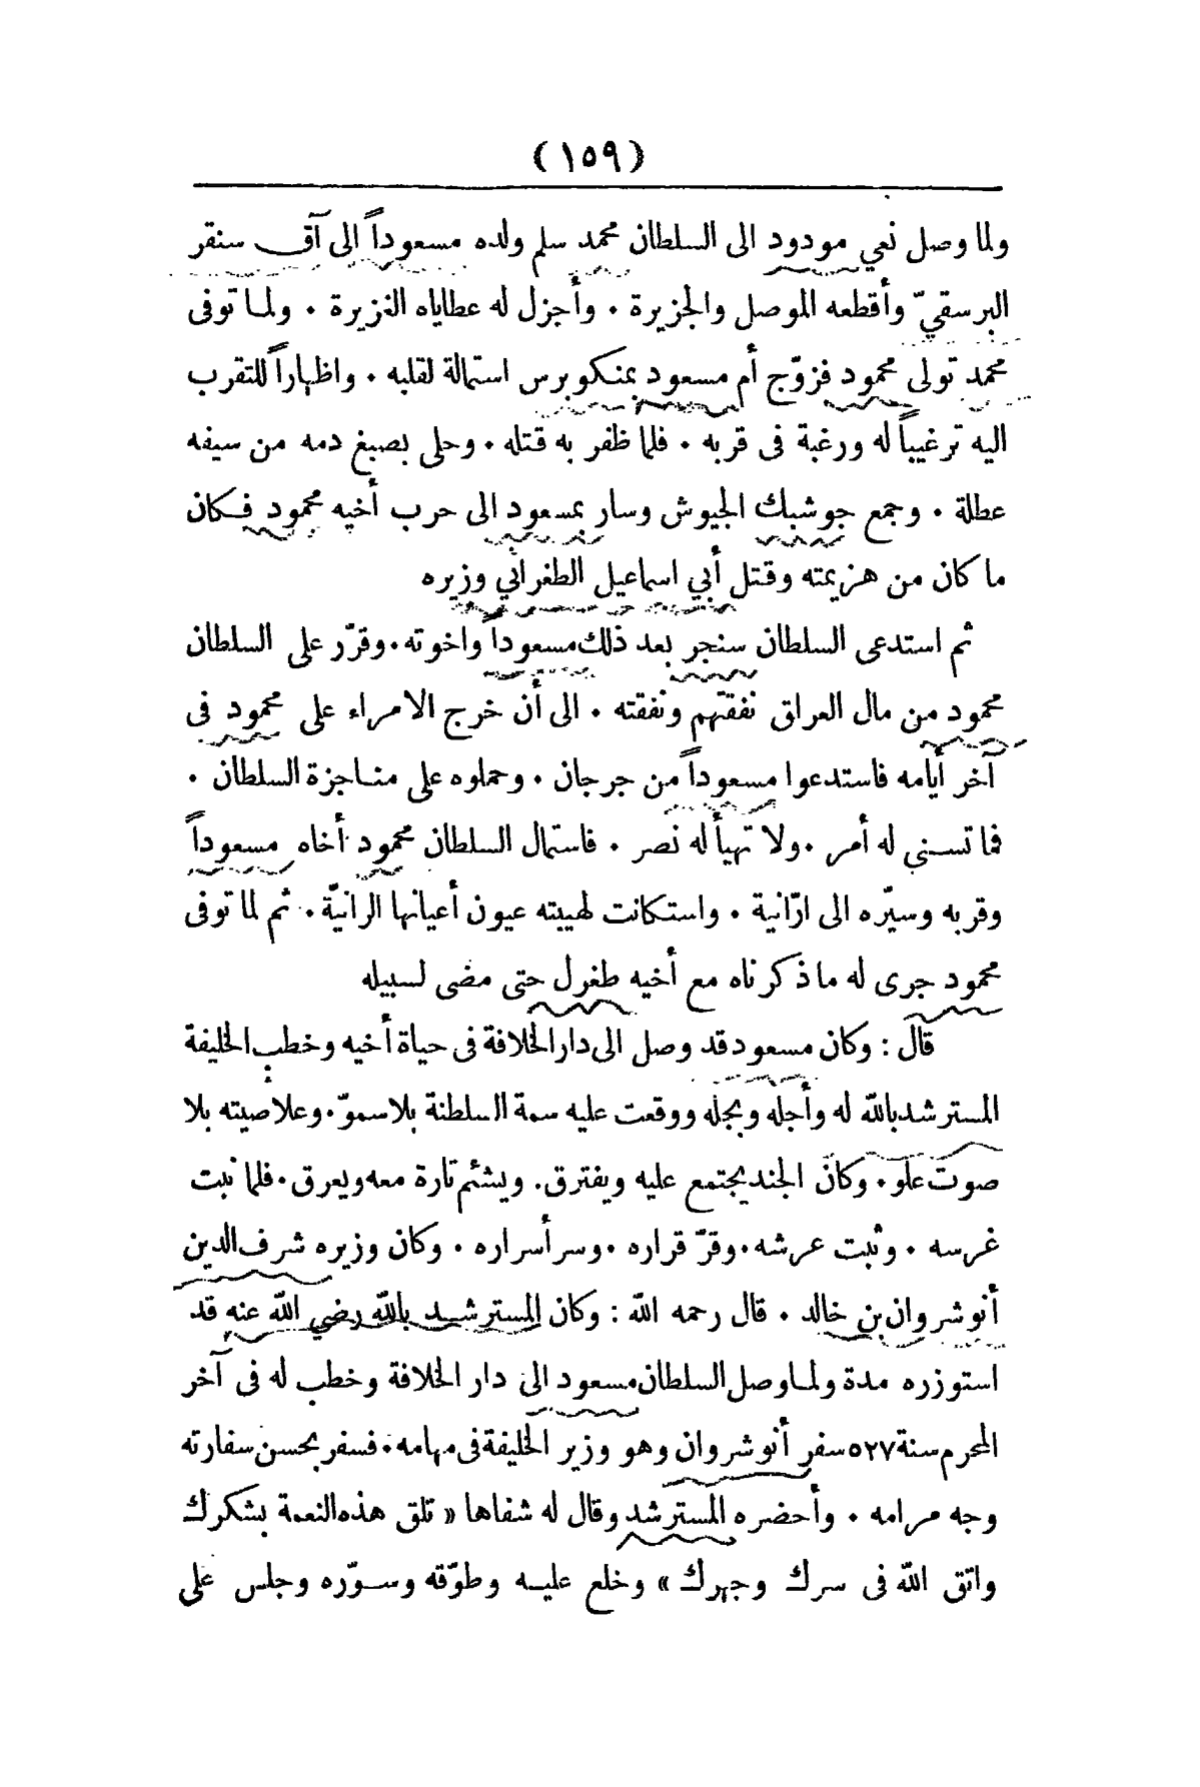 (١٥٩)
ولما وصل نعي مودود الى السلطان محمد سلم ولده مسعوداً الى آق سنقر
البرسقيّ وأقطعه الموصل والجزيرة ٠ وأجزل له عطاياه الغزيرة ٠ ولما توفى
محمد تولى محمود فزوّج أم مسعود بمنكوبرس استمالة لقلبه ٠ واظهاراً للتقرب
اليه ترغيباً له ورغبة فى قربه ٠ فلما ظفر به قتله ٠ وحلى بصبغ دمه من سيفه
عطلة ٠ وجمع جوشبك الجيوش وسار بمسعود الى حرب أخيه محمود فكان
ما كان من هزيمته وقتل أبي اسماعيل الطغرائي وزيره
ثم استدعى السلطان سنجر بعد ذلك مسعوداً واخوته ٠ وقرّر على السلطان
محمود من مال العراق نفقتهم ونفقته ٠ الى أن خرج الامراء على محمود فى
آخر أيامه فاستدعوا مسعوداً من جرجان ٠ وحملوه على مناجزة السلطان ٠
فما تسنى له أمر ٠ ولا تهيأ له نصر ٠ فاستمال السلطان محمود أخاه مسعوداً
وقربه وسيّره الى ارّانية ٠ واستكانت لهيبته عيون أعيانها الرانيّة ٠ ثم لما توفى
محمود جرى له ما ذكرناه مع أخيه طغرل حتى مضى لسبيله
قال : وكان مسعود قد وصل الى دار الخلافة فى حياة أخيه وخطب الخليفة
المسترشد بالله له وأجله وبجله ووقعت عليه سمة السلطنة بلا سموّ ٠ وعلا صيته بلا
صوت علو ٠ وكان الجند يجتمع عليه ويفترق . ويشئم تارة معه ويعرق ٠ فلما نبت
غرسه ٠ وثبت عرشه ٠ وقرّ قراره ٠ وسر أسراره ٠ وكان وزيره شرف الدين
أنوشروان بن خالد ٠ قال رحمه الله : وكان المسترشد بالله رضي الله عنه قد
استوزره مدة ولما وصل السلطان مسعود الى دار الخلافة وخطب له فى آخر
المحرم سنة ٥٢٧ سفر أنوشروان وهو وزير الخليفة فى مهامه ٠ فسفر بحسن سفارته
وجه مرامه ٠ وأحضره المسترشد وقال له شفاها « تلق هذه النعمة بشكرك
واتق الله فى سرك وجهرك » وخلع عليه وطوّقه وسوّره وجلس على